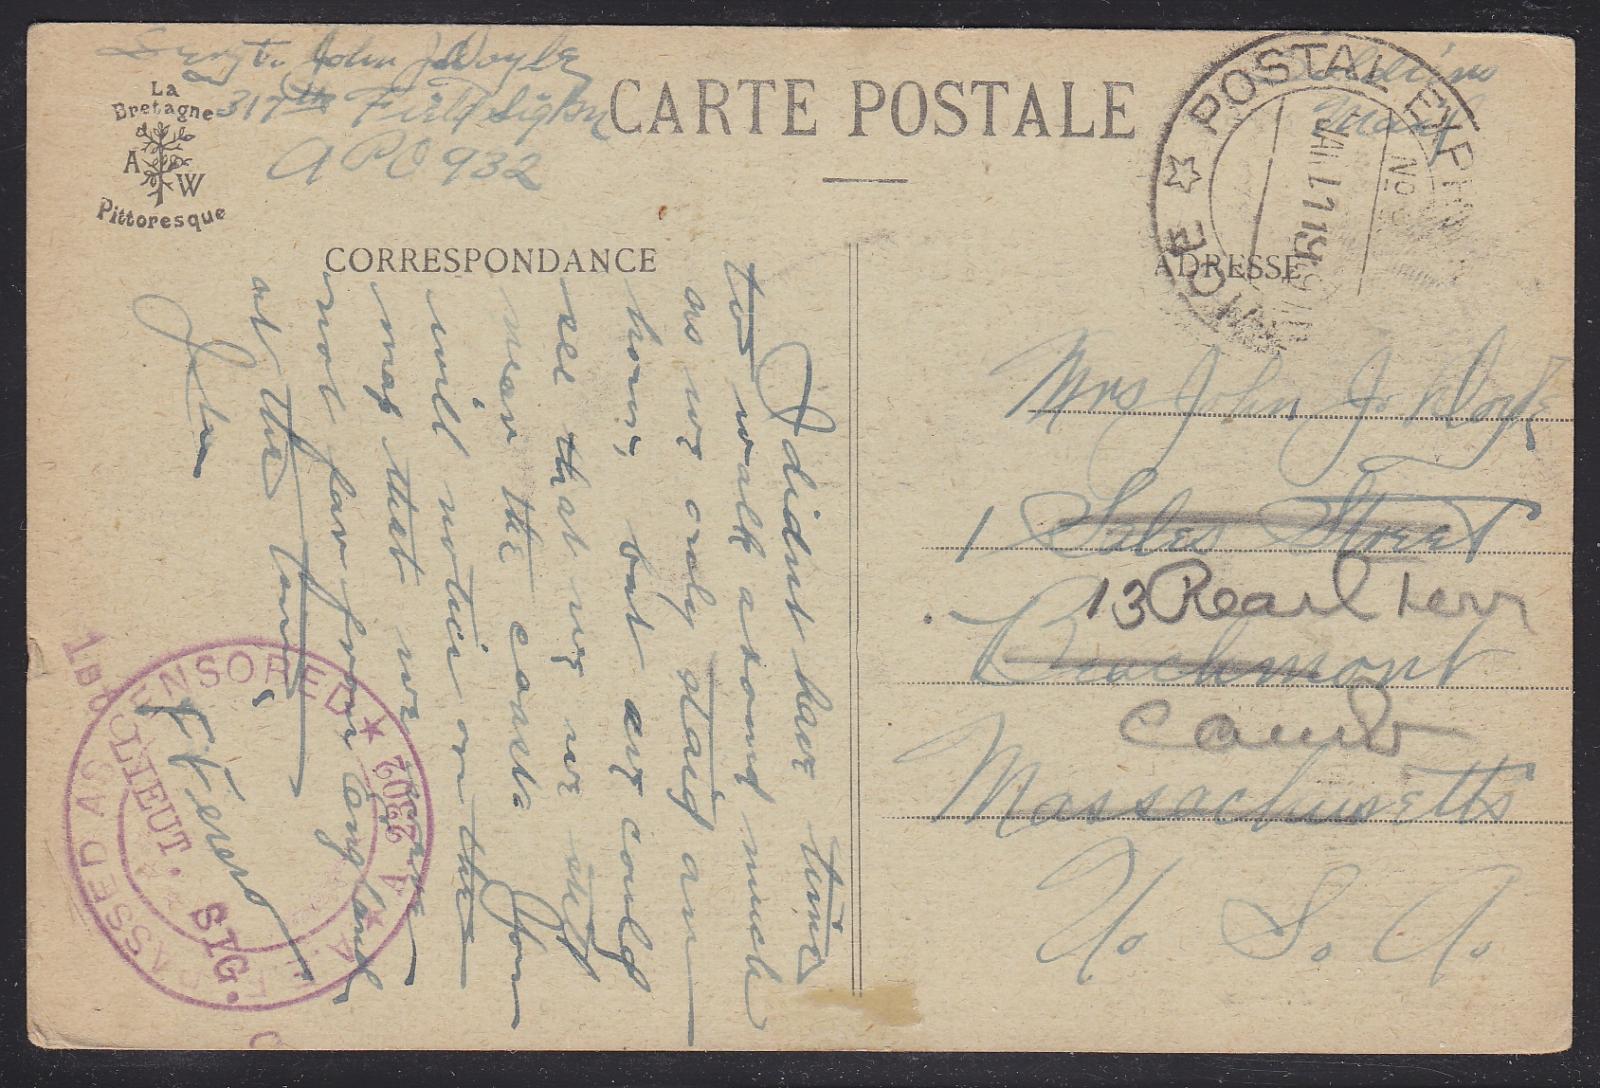 Sergt. John J Doyle
317th Field Sig Bn
A P O 932
La
Bretagne
A W
Pittoresque
CARTE POSTALE
Soldiers
Mail
POSTAL EXP
JAN 11 1919
No
CORRESPONDANCE
ADRESSE
I didnt have time
to walk around much
as we only staid an
hour, but we could
see that we were
near the coast. You
will notice on the
map that we were
not far from Lands
at the time
John
Mrs John J. Doyle
1 Sales Street
13 Pearl terr
Beachmont
Camb
Massachusetts
U. S. A.
PASSED AS CENSORED
A 2302
A.E.F.
1st LIEUT. SIG.